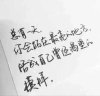 总有一天
你会站在最亮的地方，
活成自己曾经渴望的
模样.